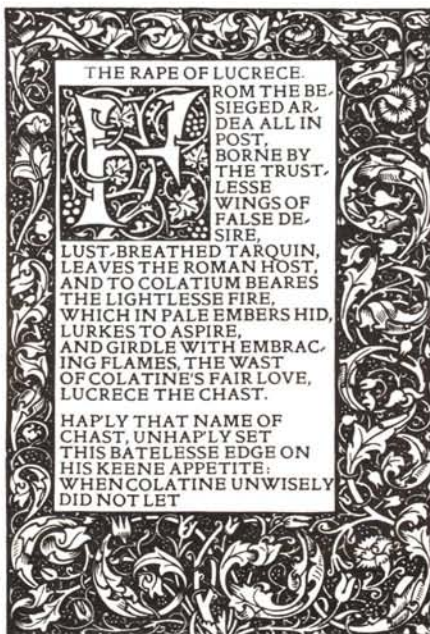 THE RAPE OF LUCRECE.
FROM THE BE-
SIEGED AR-
DEA ALL IN
POST,
BORNE BY
THE TRUST-
LESSE
WINGS OF
FALSE DE-
SIRE,
LUST-BREATHED TARQUIN,
LEAVES THE ROMAN HOST,
AND TO COLATIUM BEARES
THE LIGHTLESSE FIRE,
WHICH IN PALE EMBERS HID,
LURKES TO ASPIRE,
AND GIRDLE WITH EMBRAC-
ING FLAMES, THE WAST
OF COLATINE'S FAIR LOVE,
LUCRECE THE CHAST.
HAP'LY THAT NAME OF
CHAST, UNHAP'LY SET
THIS BATELESSE EDGE ON
HIS KEENE APPETITE:
WHEN COLATINE UNWISELY
DID NOT LET